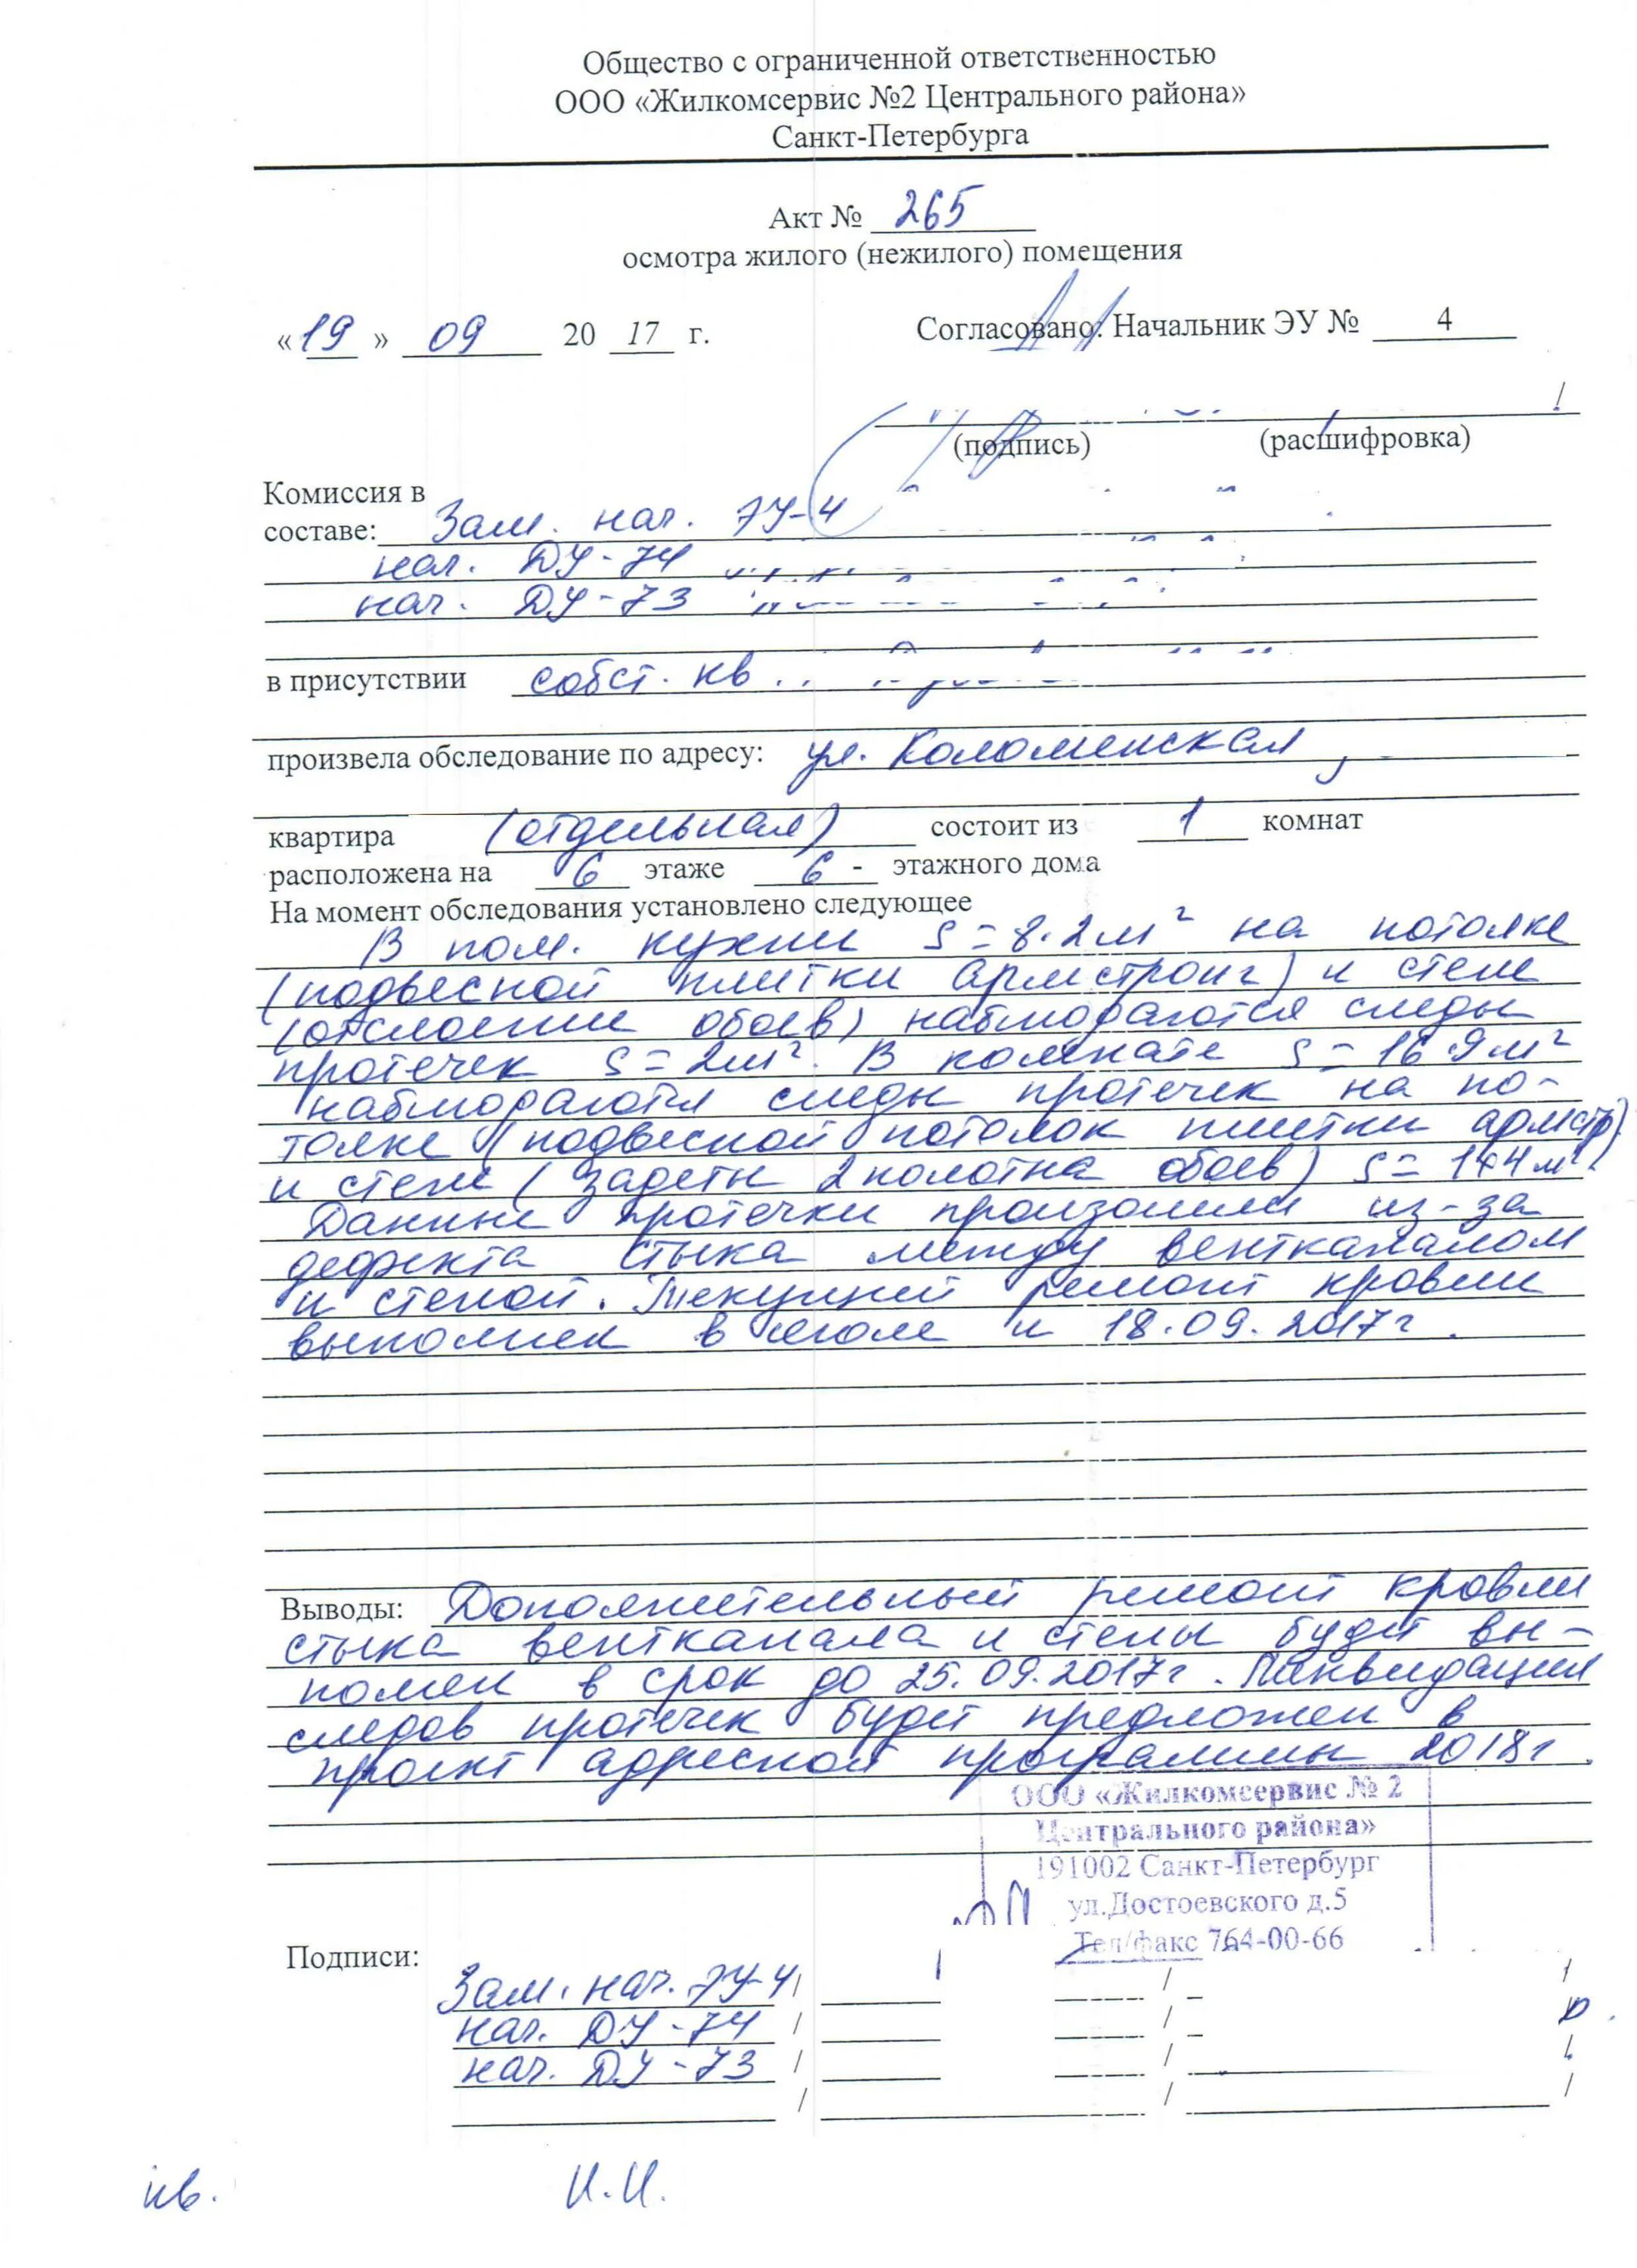 Общество с ограниченной ответственностью
ООО «Жилкомсервис №2 Центрального района»
Санкт-Петербурга
Акт № 265
осмотра жилого (нежилого) помещения
«19» 09 20 17 г. Согласовано: Начальник ЭУ № 4
(подпись) (расшифровка)
Комиссия в
составе: Зам. нач. ЭУ-4
нач. ДУ-74
нач. ДУ-73
в присутствии собст. кв
произвела обследование по адресу: ул. Коломенская,
квартира (отдельная) состоит из 1 комнат
расположена на 6 этаже 6 - этажного дома
На момент обследования установлено следующее
В пом. кухни S=8.2м² на потолке
(подвесной плитки армстронг) и стене
(отслоение обоев) наблюдаются следы
протечек S=2м². В комнате S=16.9м²
наблюдаются следы протечек на по-
толке (подвесной потолок плитки армстр)
и стене (задеты 2 полотна обоев) S=
Данные протечки произошли из-за
дефекта стыка между вентканалом
и стеной. Текущий ремонт кровли
выполнен в июле и 18.09.2017г.
Выводы: Дополнительный ремонт кровли
стыка вентканала и стены будет вы-
полнен в срок до 25.09.2017г. Ликвидация
следов протечек будет предложен в
проект адресной программы 2018г.
ООО «Жилкомсервис № 2
Центрального района»
191002 Санкт-Петербург
ул.Достоевского д.5
Тел/факс 764-00-66
Подписи:
Зам. нач. ЭУ-4 / /
нач. ДУ-74 / /
нач. ДУ-73 / /
/ / /
кв. И.И.